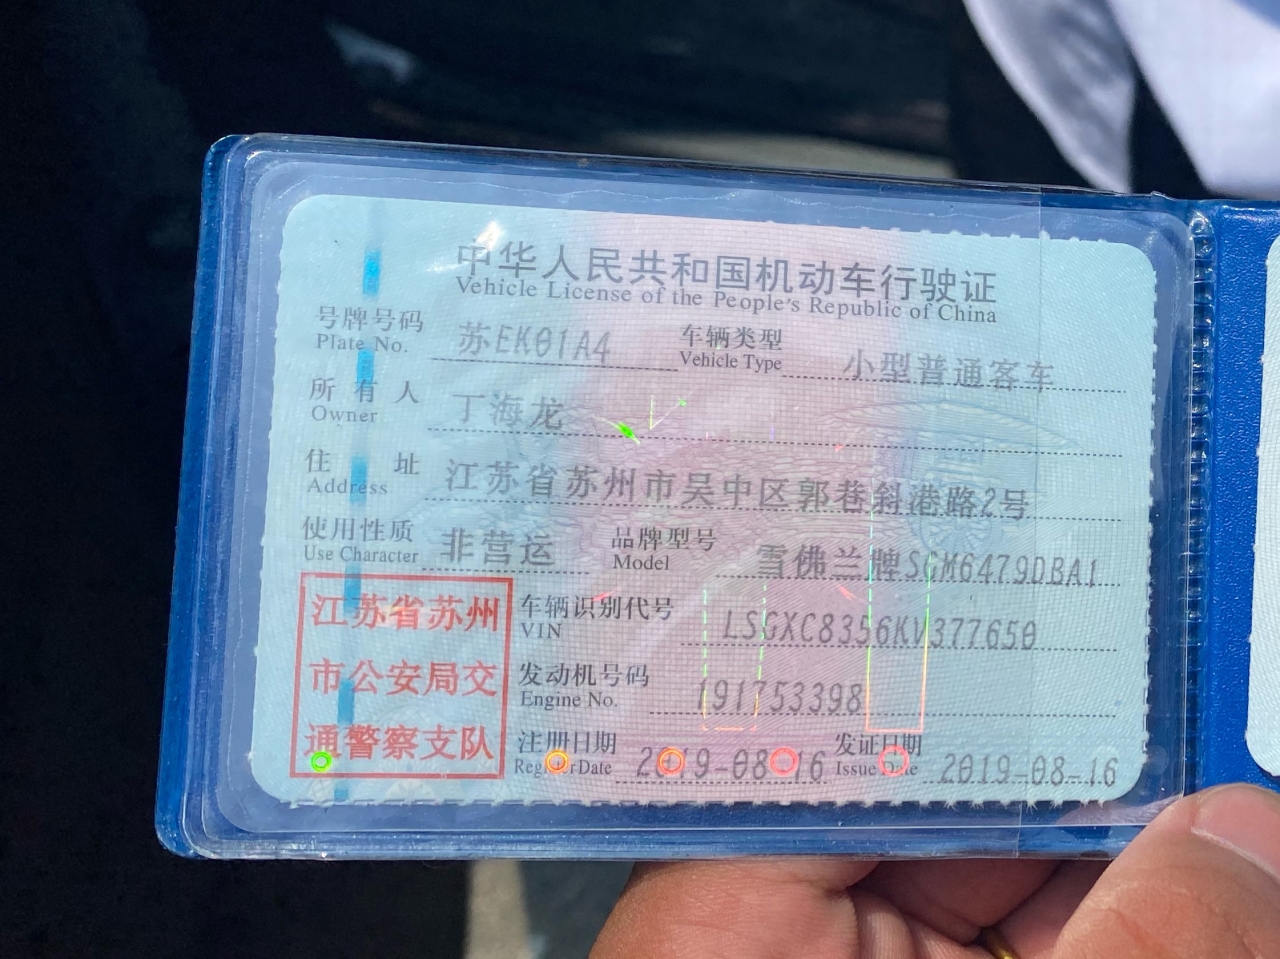 中华人民共和国机动车行驶证
Vehicle License of the People's Republic of China
号牌号码 苏EK01A4 车辆类型 小型普通客车
Plate No. Vehicle Type
所有人 丁海龙
Owner
住址 江苏省苏州市吴中区郭巷斜港路2号
Address
使用性质 非营运 品牌型号 雪佛兰牌SGM6479DBA1
Use Character Model
江苏省苏州
市公安局交
通警察支队
车辆识别代号 LSGXC8356KV377650
VIN
发动机号码 191753398
Engine No.
注册日期 2019-08-16 发证日期 2019-08-16
Register Date Issue Date